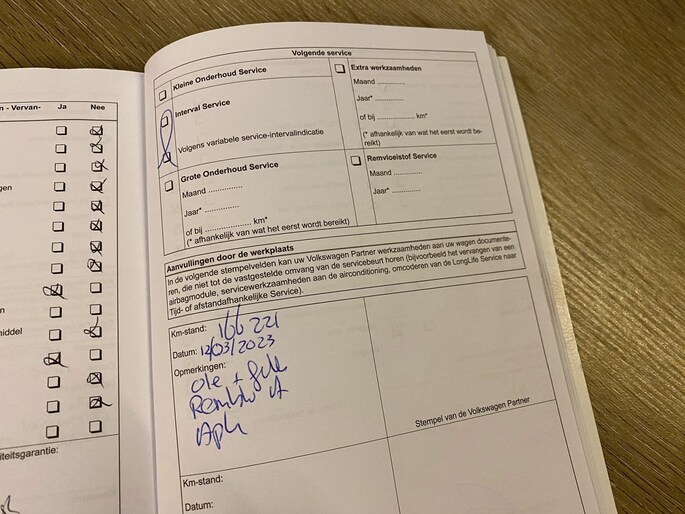 n - Vervan-
Ja
Nee
gen
n
middel
n
iteitsgarantie:
Volgende service
Kleine Onderhoud Service
Interval Service
Volgens variabele service-intervalindicatie
Grote Onderhoud Service
Maand ...............
Jaar* ...............
of bij .................... km*
(* afhankelijk van wat het eerst wordt bereikt)
Extra werkzaamheden
Maand ............
Jaar* ............
of bij .............. km*
(* afhankelijk van wat het eerst wordt be-
reikt)
Remvloeistof Service
Maand ............
Jaar* ............
Aanvullingen door de werkplaats
In de volgende stempelvelden kan uw Volkswagen Partner werkzaamheden aan uw wagen documente-
ren, die niet tot de vastgestelde omvang van de servicebeurt horen (bijvoorbeeld het vervangen van een
airbagmodule, servicewerkzaamheden aan de airconditioning, omcoderen van de LongLife Service naar
Tijd- of afstandafhankelijke Service).
Km-stand: 166 221
Datum: 12/03/2023
Opmerkingen:
Ole +
Stempel van de Volkswagen Partner
Km-stand:
Datum: